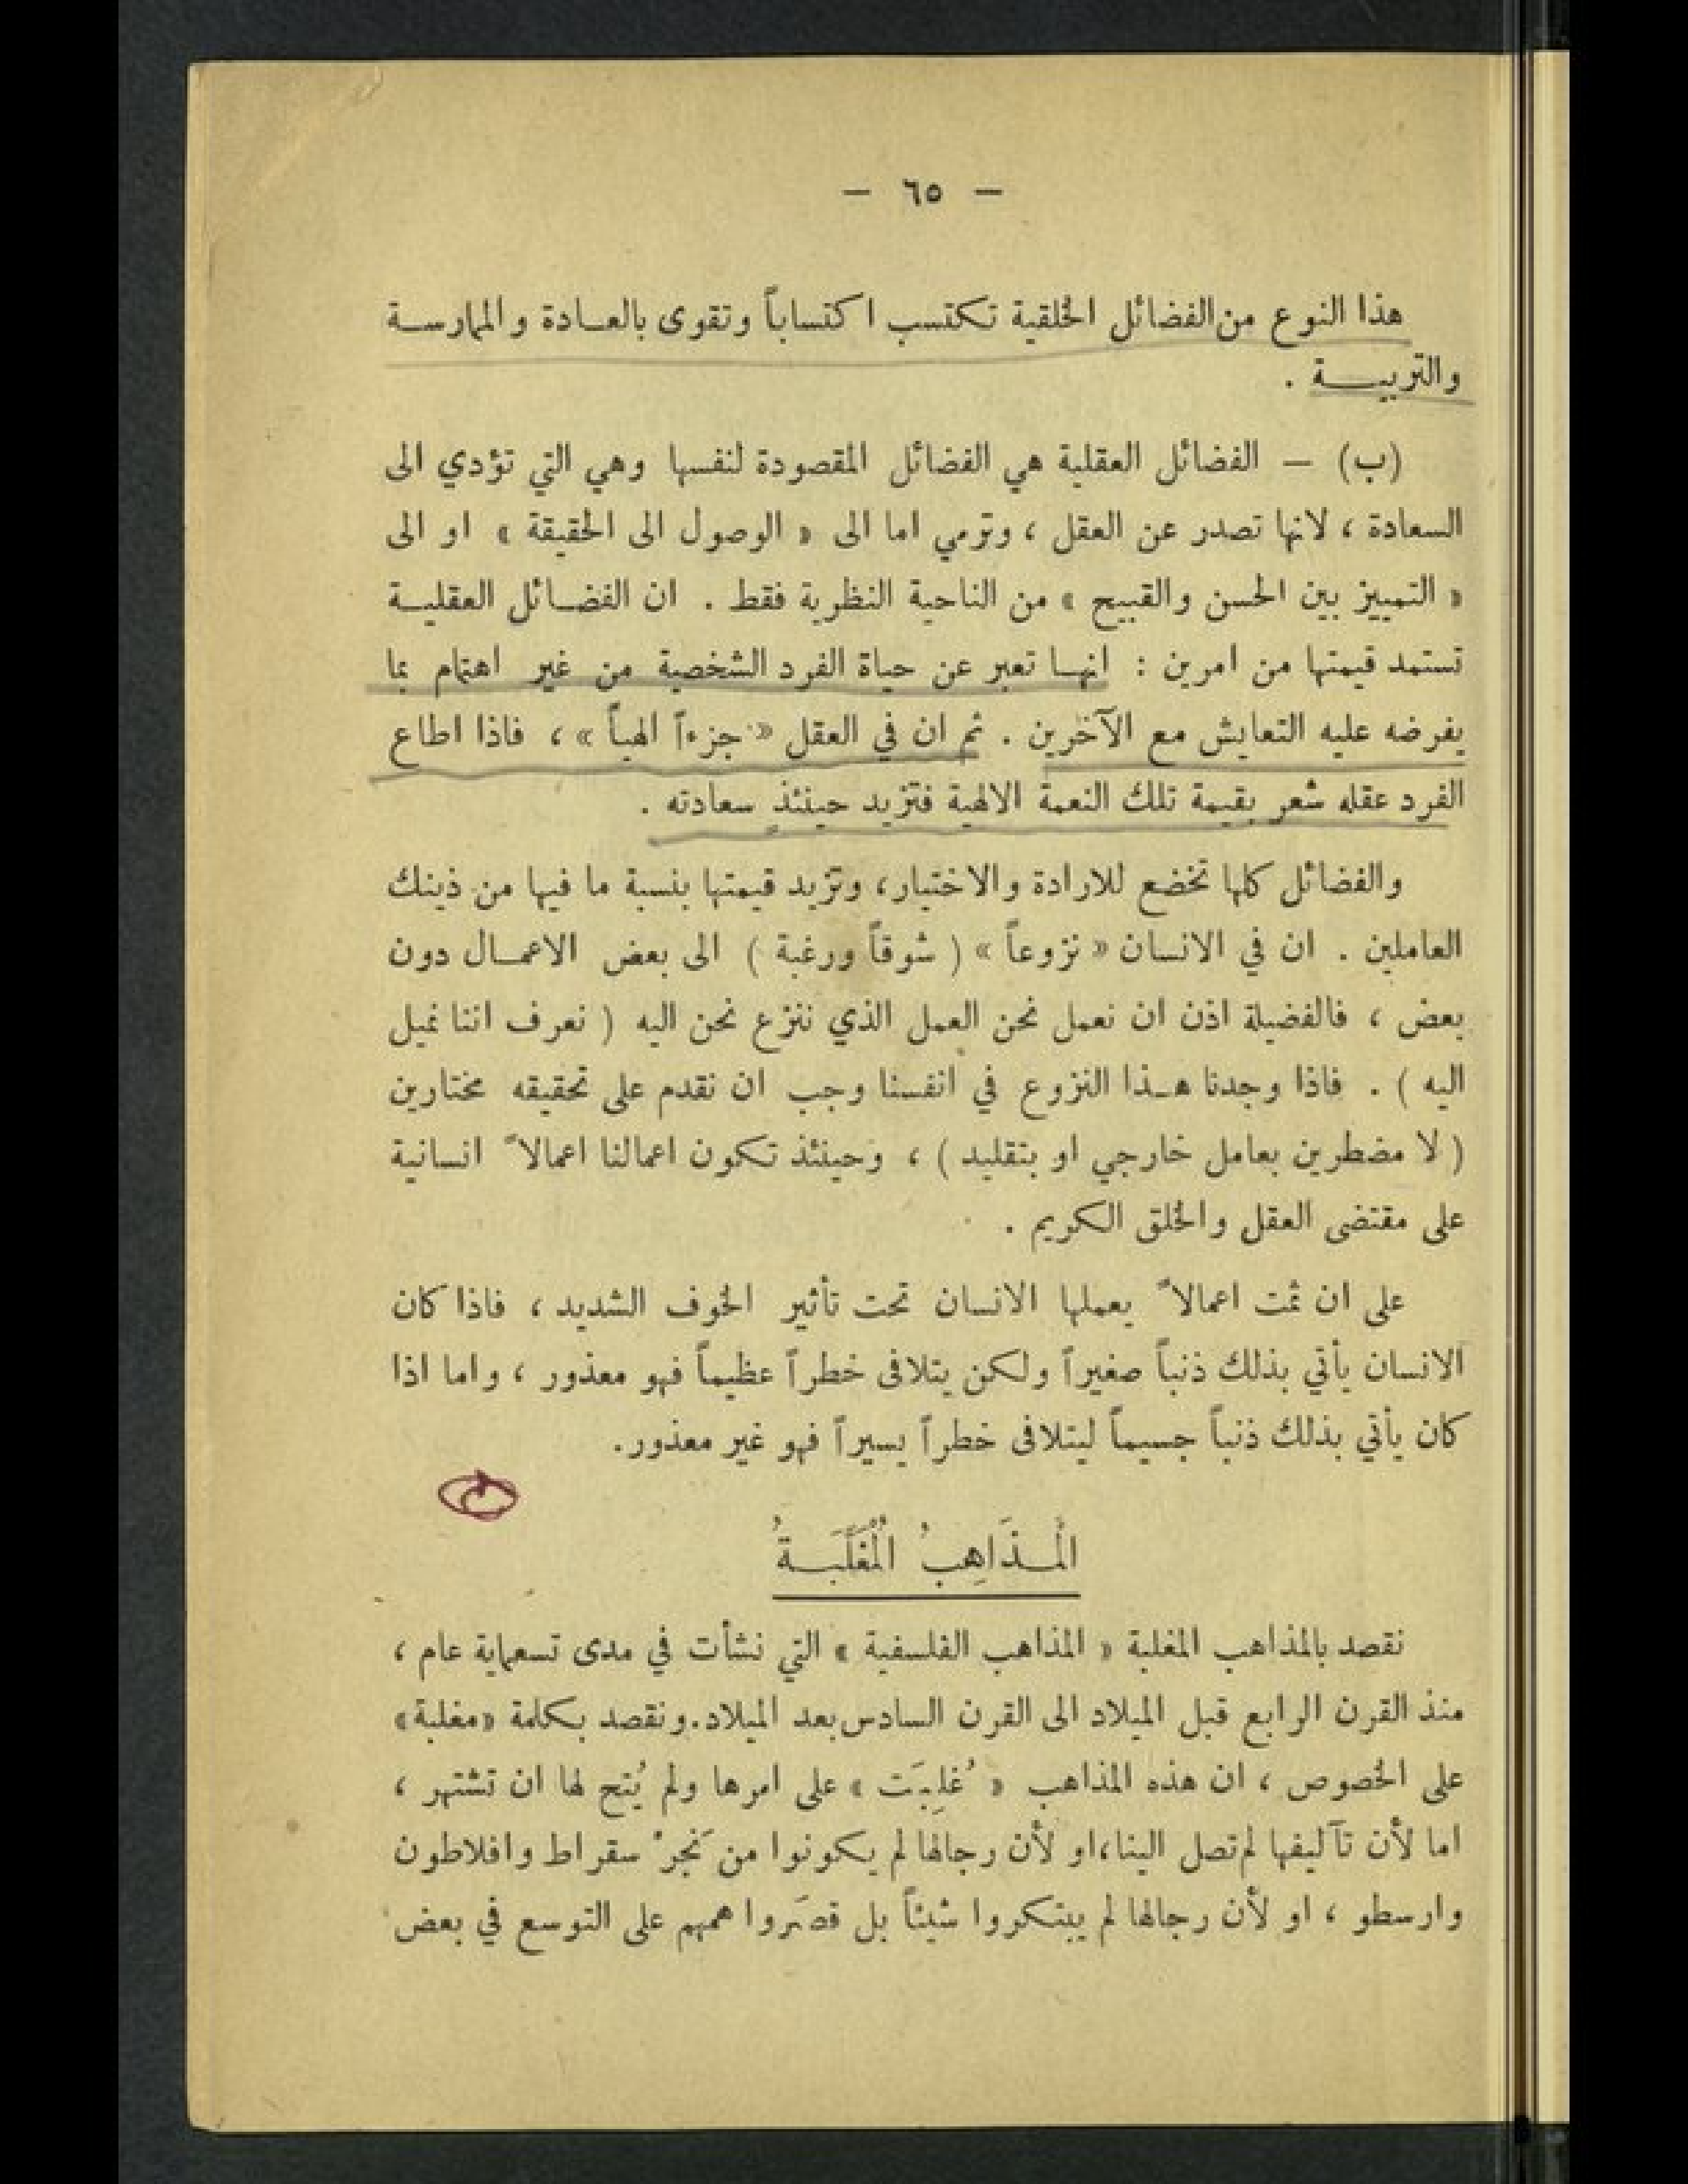 — ٦٥ —
هذا النوع من الفضائل الخلقية تكتسب اكتساباً وتقوى بالعادة والممارسة
والتربية .
(ب) — الفضائل العقلية هي الفضائل المقصودة لنفسها وهي التي تؤدي الى
السعادة ، لانها تصدر عن العقل ، وترمي اما الى « الوصول الى الحقيقة » او الى
« التمييز بين الحسن والقبيح » من الناحية النظرية فقط . ان الفضائل العقلية
تستمد قيمتها من امرين : انها تعبر عن حياة الفرد الشخصية من غير اهتمام بما
يفرضه عليه التعايش مع الآخرين . ثم ان في العقل « جزءاً الهياً » ، فاذا اطاع
الفرد عقله شعر بقيمة تلك النعمة الالهية فتزيد حينئذٍ سعادته .
والفضائل كلها تخضع للارادة والاختيار ، وتزيد قيمتها بنسبة ما فيها من ذينك
العاملين . ان في الانسان « نزوعاً » ( شوقاً ورغبة ) الى بعض الاعمال دون
بعض ، فالفضيلة اذن ان نعمل نحن العمل الذي ننزع نحن اليه ( نعرف اننا نميل
اليه ) . فاذا وجدنا هذا النزوع في انفسنا وجب ان نقدم على تحقيقه مختارين
( لا مضطرين بعامل خارجي او بتقليد ) ، وحينئذ تكون اعمالنا اعمالاً انسانية
على مقتضى العقل والخلق الكريم .
على ان ثمت اعمالاً يعملها الانسان تحت تأثير الخوف الشديد ، فاذا كان
الانسان يأتي بذلك ذنباً صغيراً ولكن يتلافى خطراً عظيماً فهو معذور ، واما اذا
كان يأتي بذلك ذنباً جسيماً ليتلافى خطراً يسيراً فهو غير معذور.
الْمَذَاهِبُ الْمُغَلَّبَةُ
نقصد بالمذاهب المغلبة « المذاهب الفلسفية » التي نشأت في مدى تسعماية عام ،
منذ القرن الرابع قبل الميلاد الى القرن السادس بعد الميلاد. ونقصد بكلمة «مغلبة»
على الخصوص ، ان هذه المذاهب « غُلِبَت » على امرها ولم يُتح لها ان تشتهر ،
اما لأن تآليفها لم تصل الينا، او لأن رجالها لم يكونوا من نَجْرِ سقراط وافلاطون
وارسطو ، او لأن رجالها لم يبتكروا شيئاً بل قصَروا هممهم على التوسع في بعض